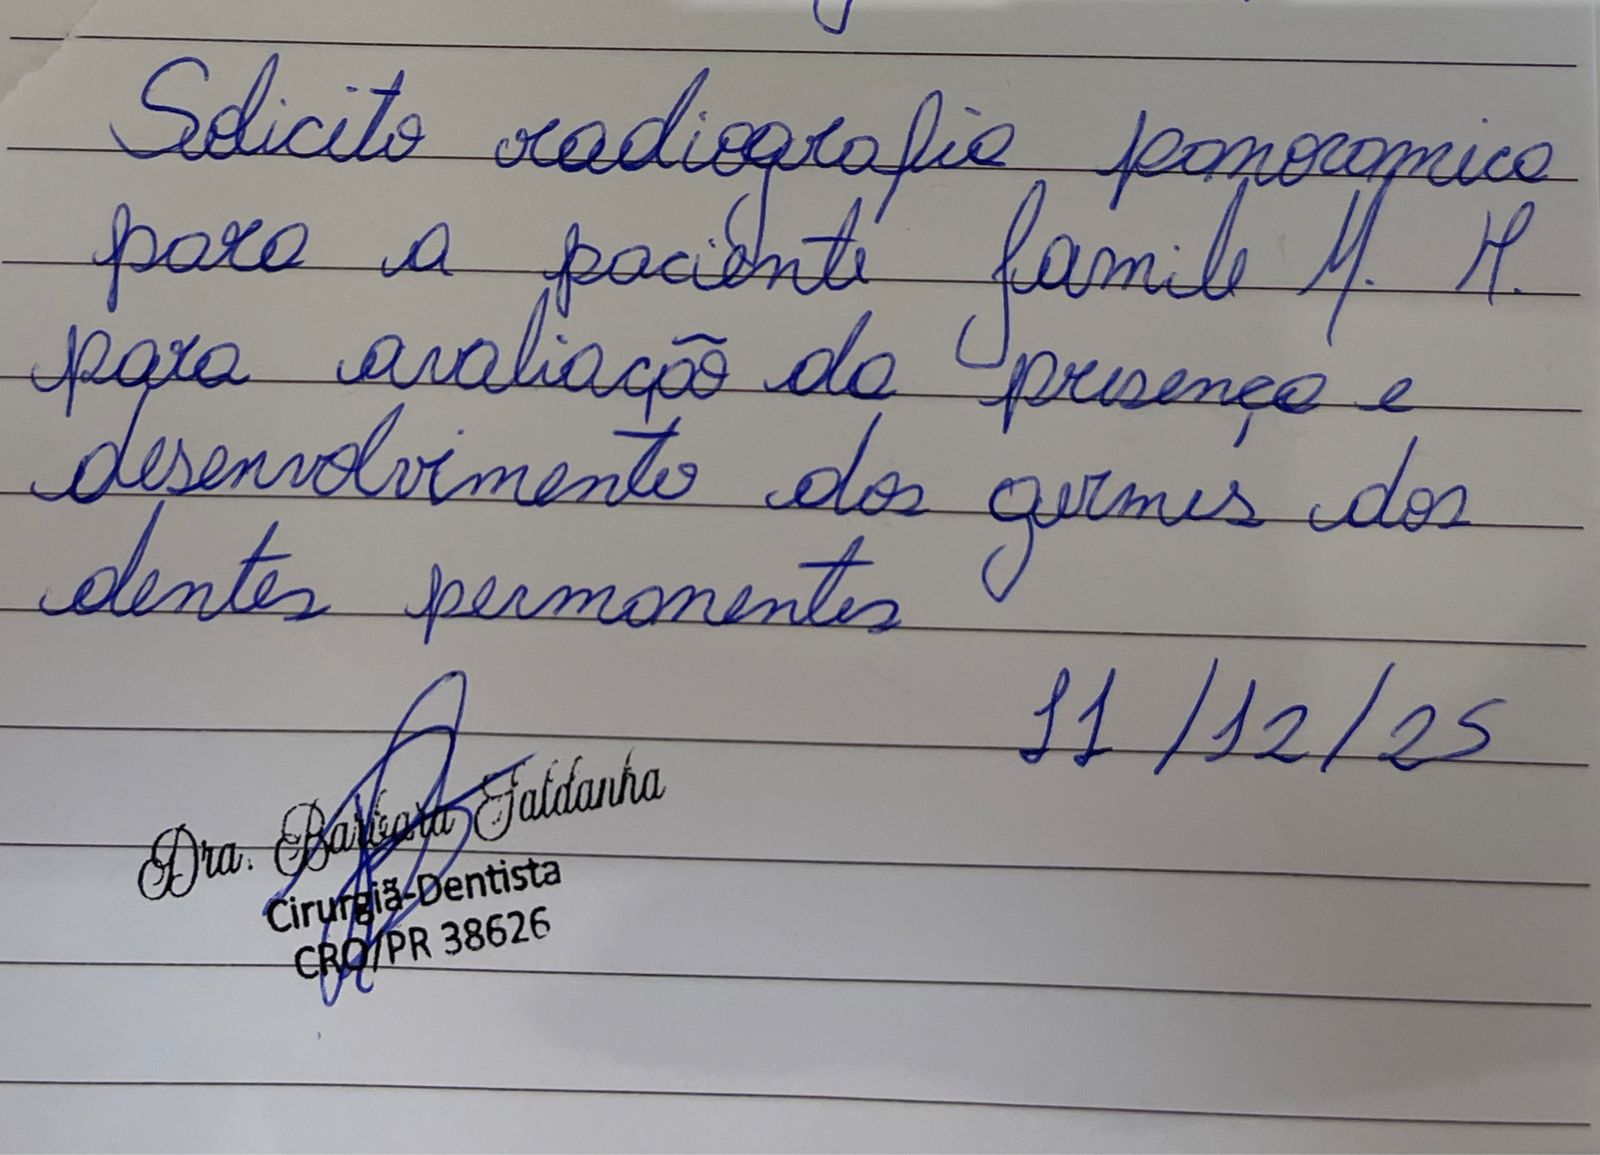 Solicito radiografia panoramica
para a paciente Jamile M. H.
para avaliação da presença e
desenvolvimento dos germes dos
dentes permanentes
11/12/25
Dra. Barbara Saldanha
Cirurgiã-Dentista
CRO/PR 38626